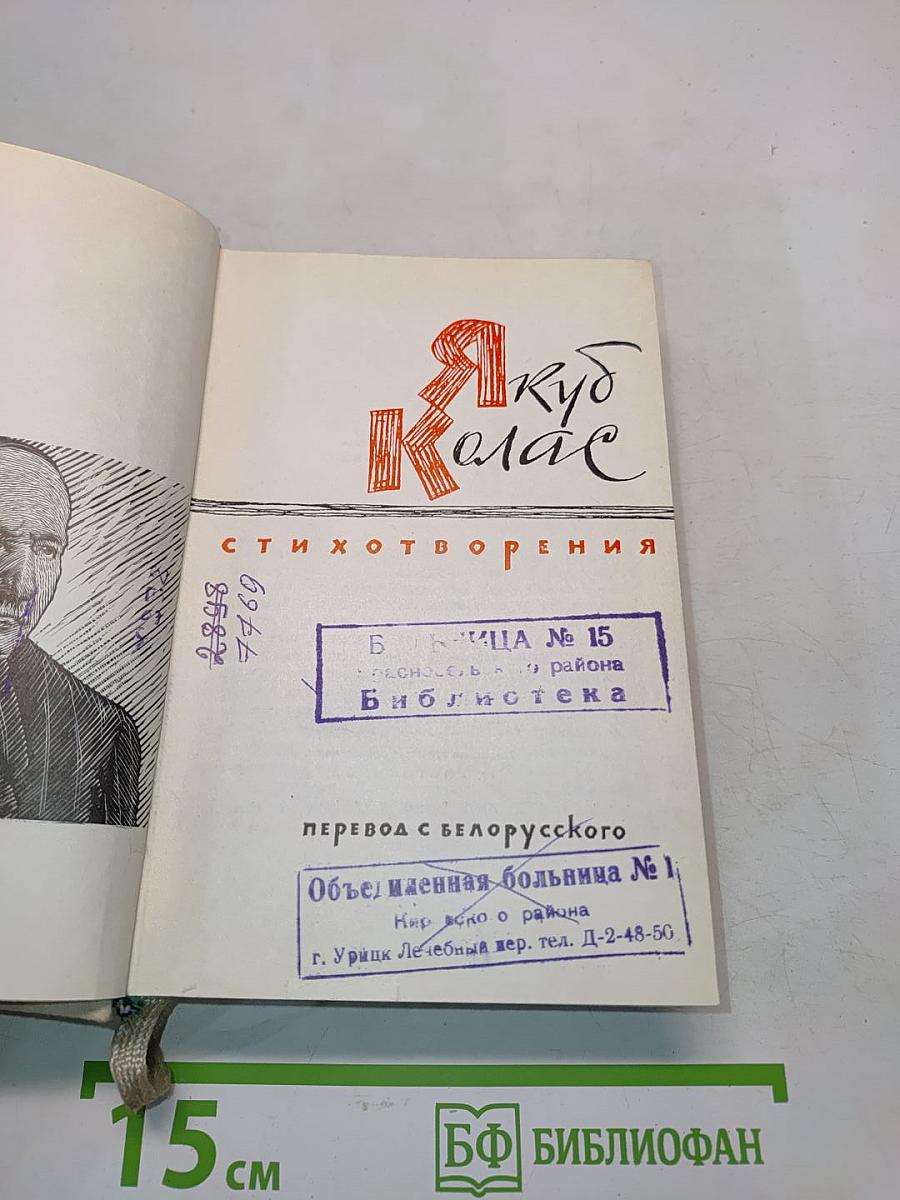 Якуб
Колас
СТИХОТВОРЕНИЯ
2848
7769
№ 15
района
Библиотека
ПЕРЕВОД С БЕЛОРУССКОГО
Объединенная больница № 1
района
г. Урицк Лечебный пер. тел. Д-2-48-50
15 см
БФ БИБЛИОФАН